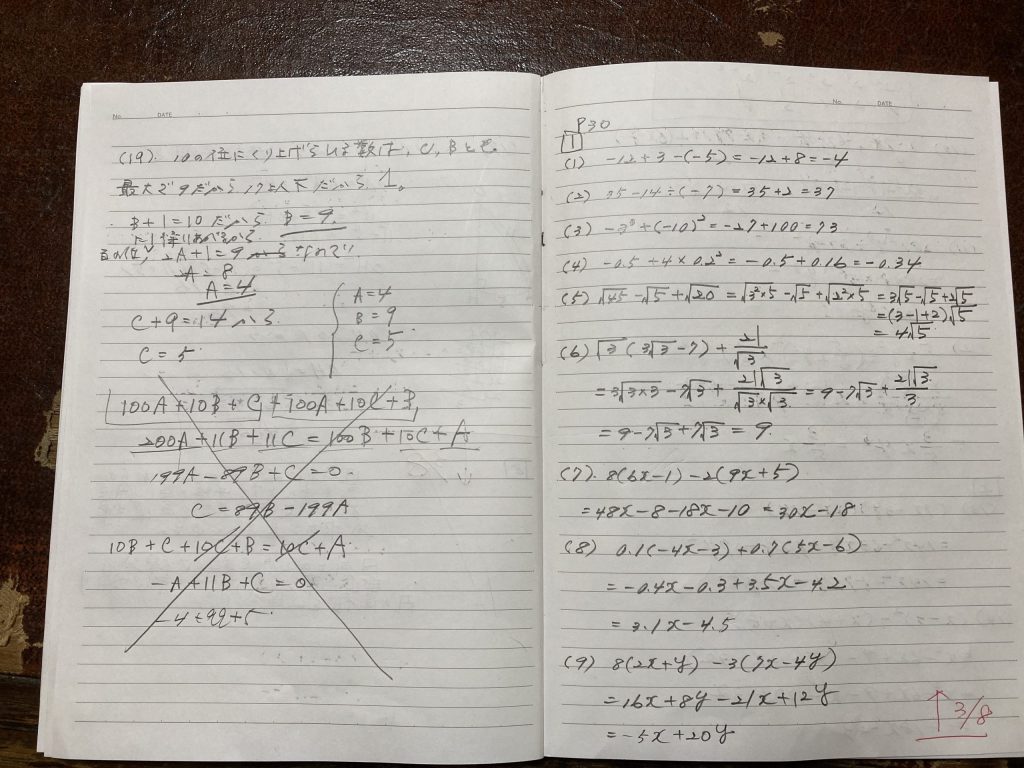 No.
DATE
(19). 10の位にくり上げられる数は, C, Bとも
最大で9だから 17以下だから 1。
B+1=10 だから B=9.
百の位 2A+1=9 から なので
2A=8
A=4.
C+9=14 から
C=5.
A=4
B=9
C=5
100A+10B+C+100A+10C+B
200A+11B+11C=100B+10C+A
199A-89B+C=0.
C=89B-199A
10B+C+10C+B=10C+A
-A+11B+C=0
-4+99+5
No.
DATE
P30
1
(1) -12+3-(-5)=-12+8=-4
(2) 35-14÷(-7)=35+2=37
(3) -3³+(-10)²=-27+100=73
(4) -0.5+4×0.2²=-0.5+0.16=-0.34
(5) √45-√5+√20=√3²×5-√5+√2²×5=3√5-√5+2√5
=(3-1+2)√5
=4√5
(6) √3(3√3-7)+21/√3
=3√3×3-7√3+21√3/√3×√3=9-7√3+21√3/3
=9-7√3+7√3=9.
(7). 8(6x-1)-2(9x+5)
=48x-8-18x-10=30x-18
(8) 0.1(-4x-3)+0.7(5x-6)
=-0.4x-0.3+3.5x-4.2
=3.1x-4.5
(9) 8(2x+y)-3(7x-4y)
=16x+8y-21x+12y
=-5x+20y
↑3/8